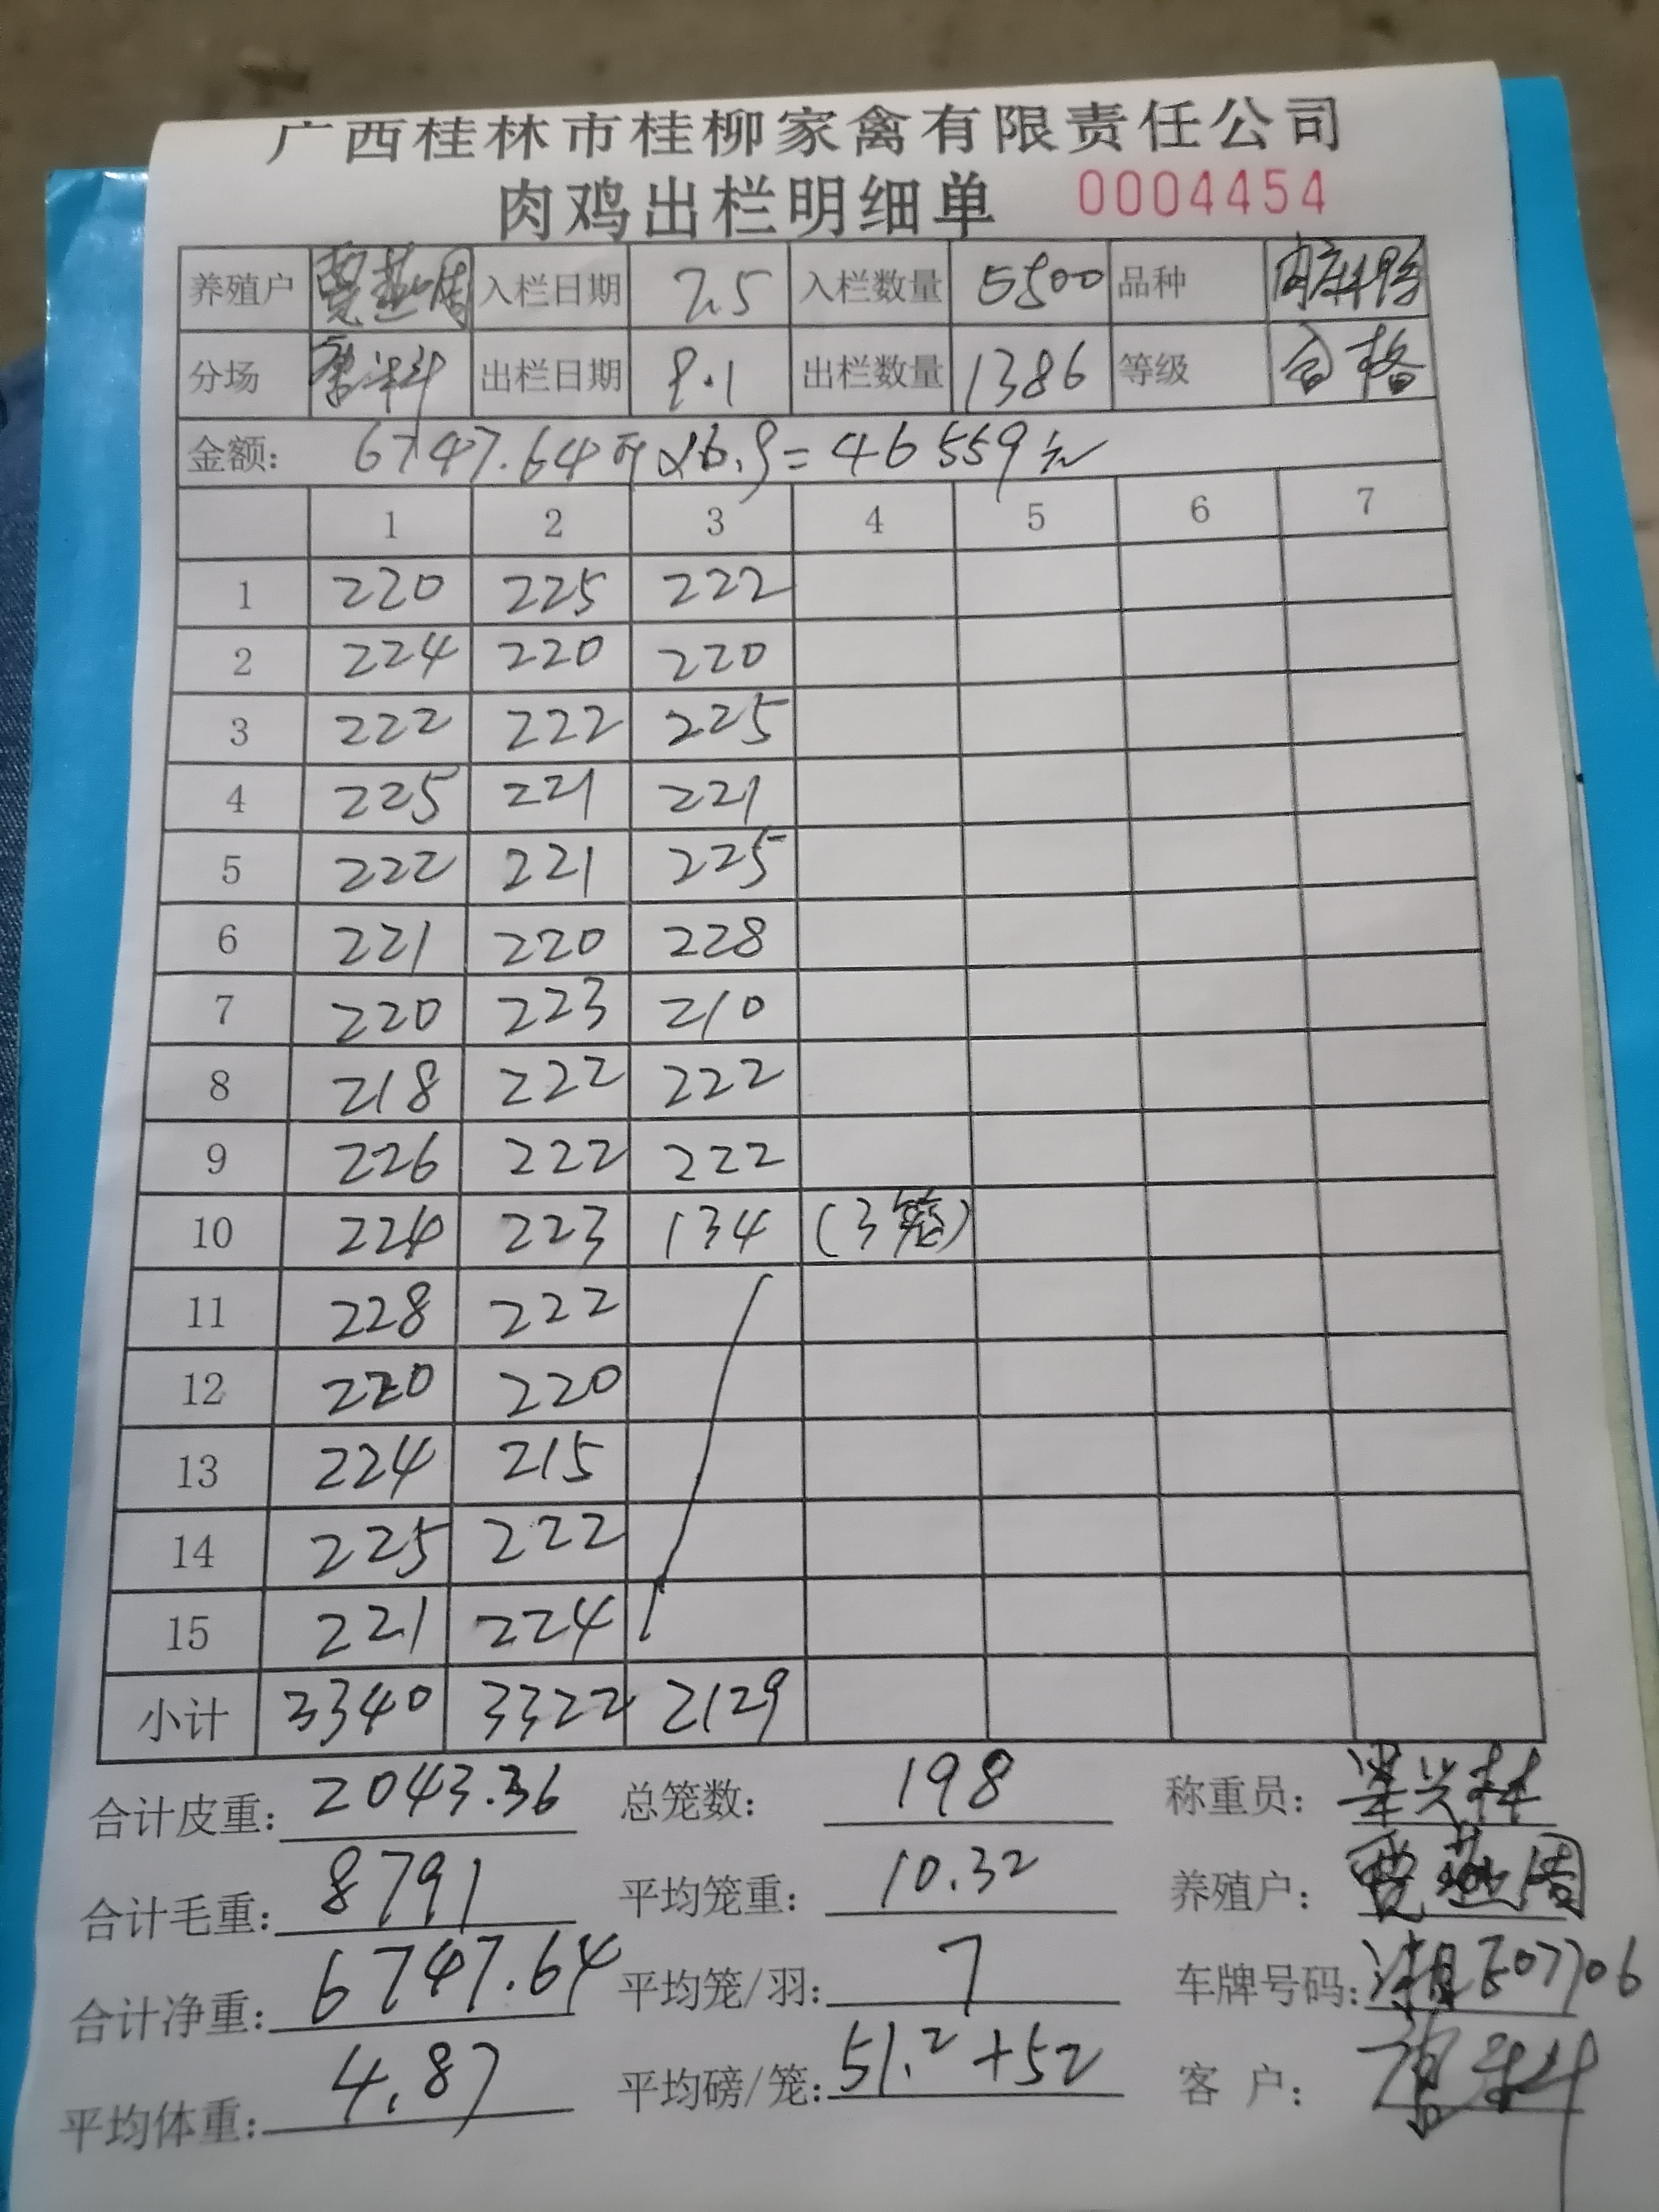 广西桂林市桂柳家禽有限责任公司
肉鸡出栏明细单 0004454
养殖户 燕周 入栏日期 7.5 入栏数量 5500 品种
分场 唐 出栏日期 9.1 出栏数量 1386 等级 合格
金额: 6747.64斤×6.9=46559元
1 2 3 4 5 6 7
1 220 225 222
2 224 220 220
3 222 222 225
4 225 221 221
5 222 221 225
6 221 220 228
7 220 223 210
8 218 222 222
9 226 222 222
10 224 223 134 (3笼)
11 228 222
12 220 220
13 224 215
14 225 222
15 221 224
小计 3340 3322 2129
合计皮重: 2043.36 总笼数: 198 称重员: 梁兴林
合计毛重: 8791 平均笼重: 10.32 养殖户: 燕周
合计净重: 6747.64 平均笼/羽: 7 车牌号码: 湘E07706
平均体重: 4.87 平均磅/笼: 51.2+52 客户: